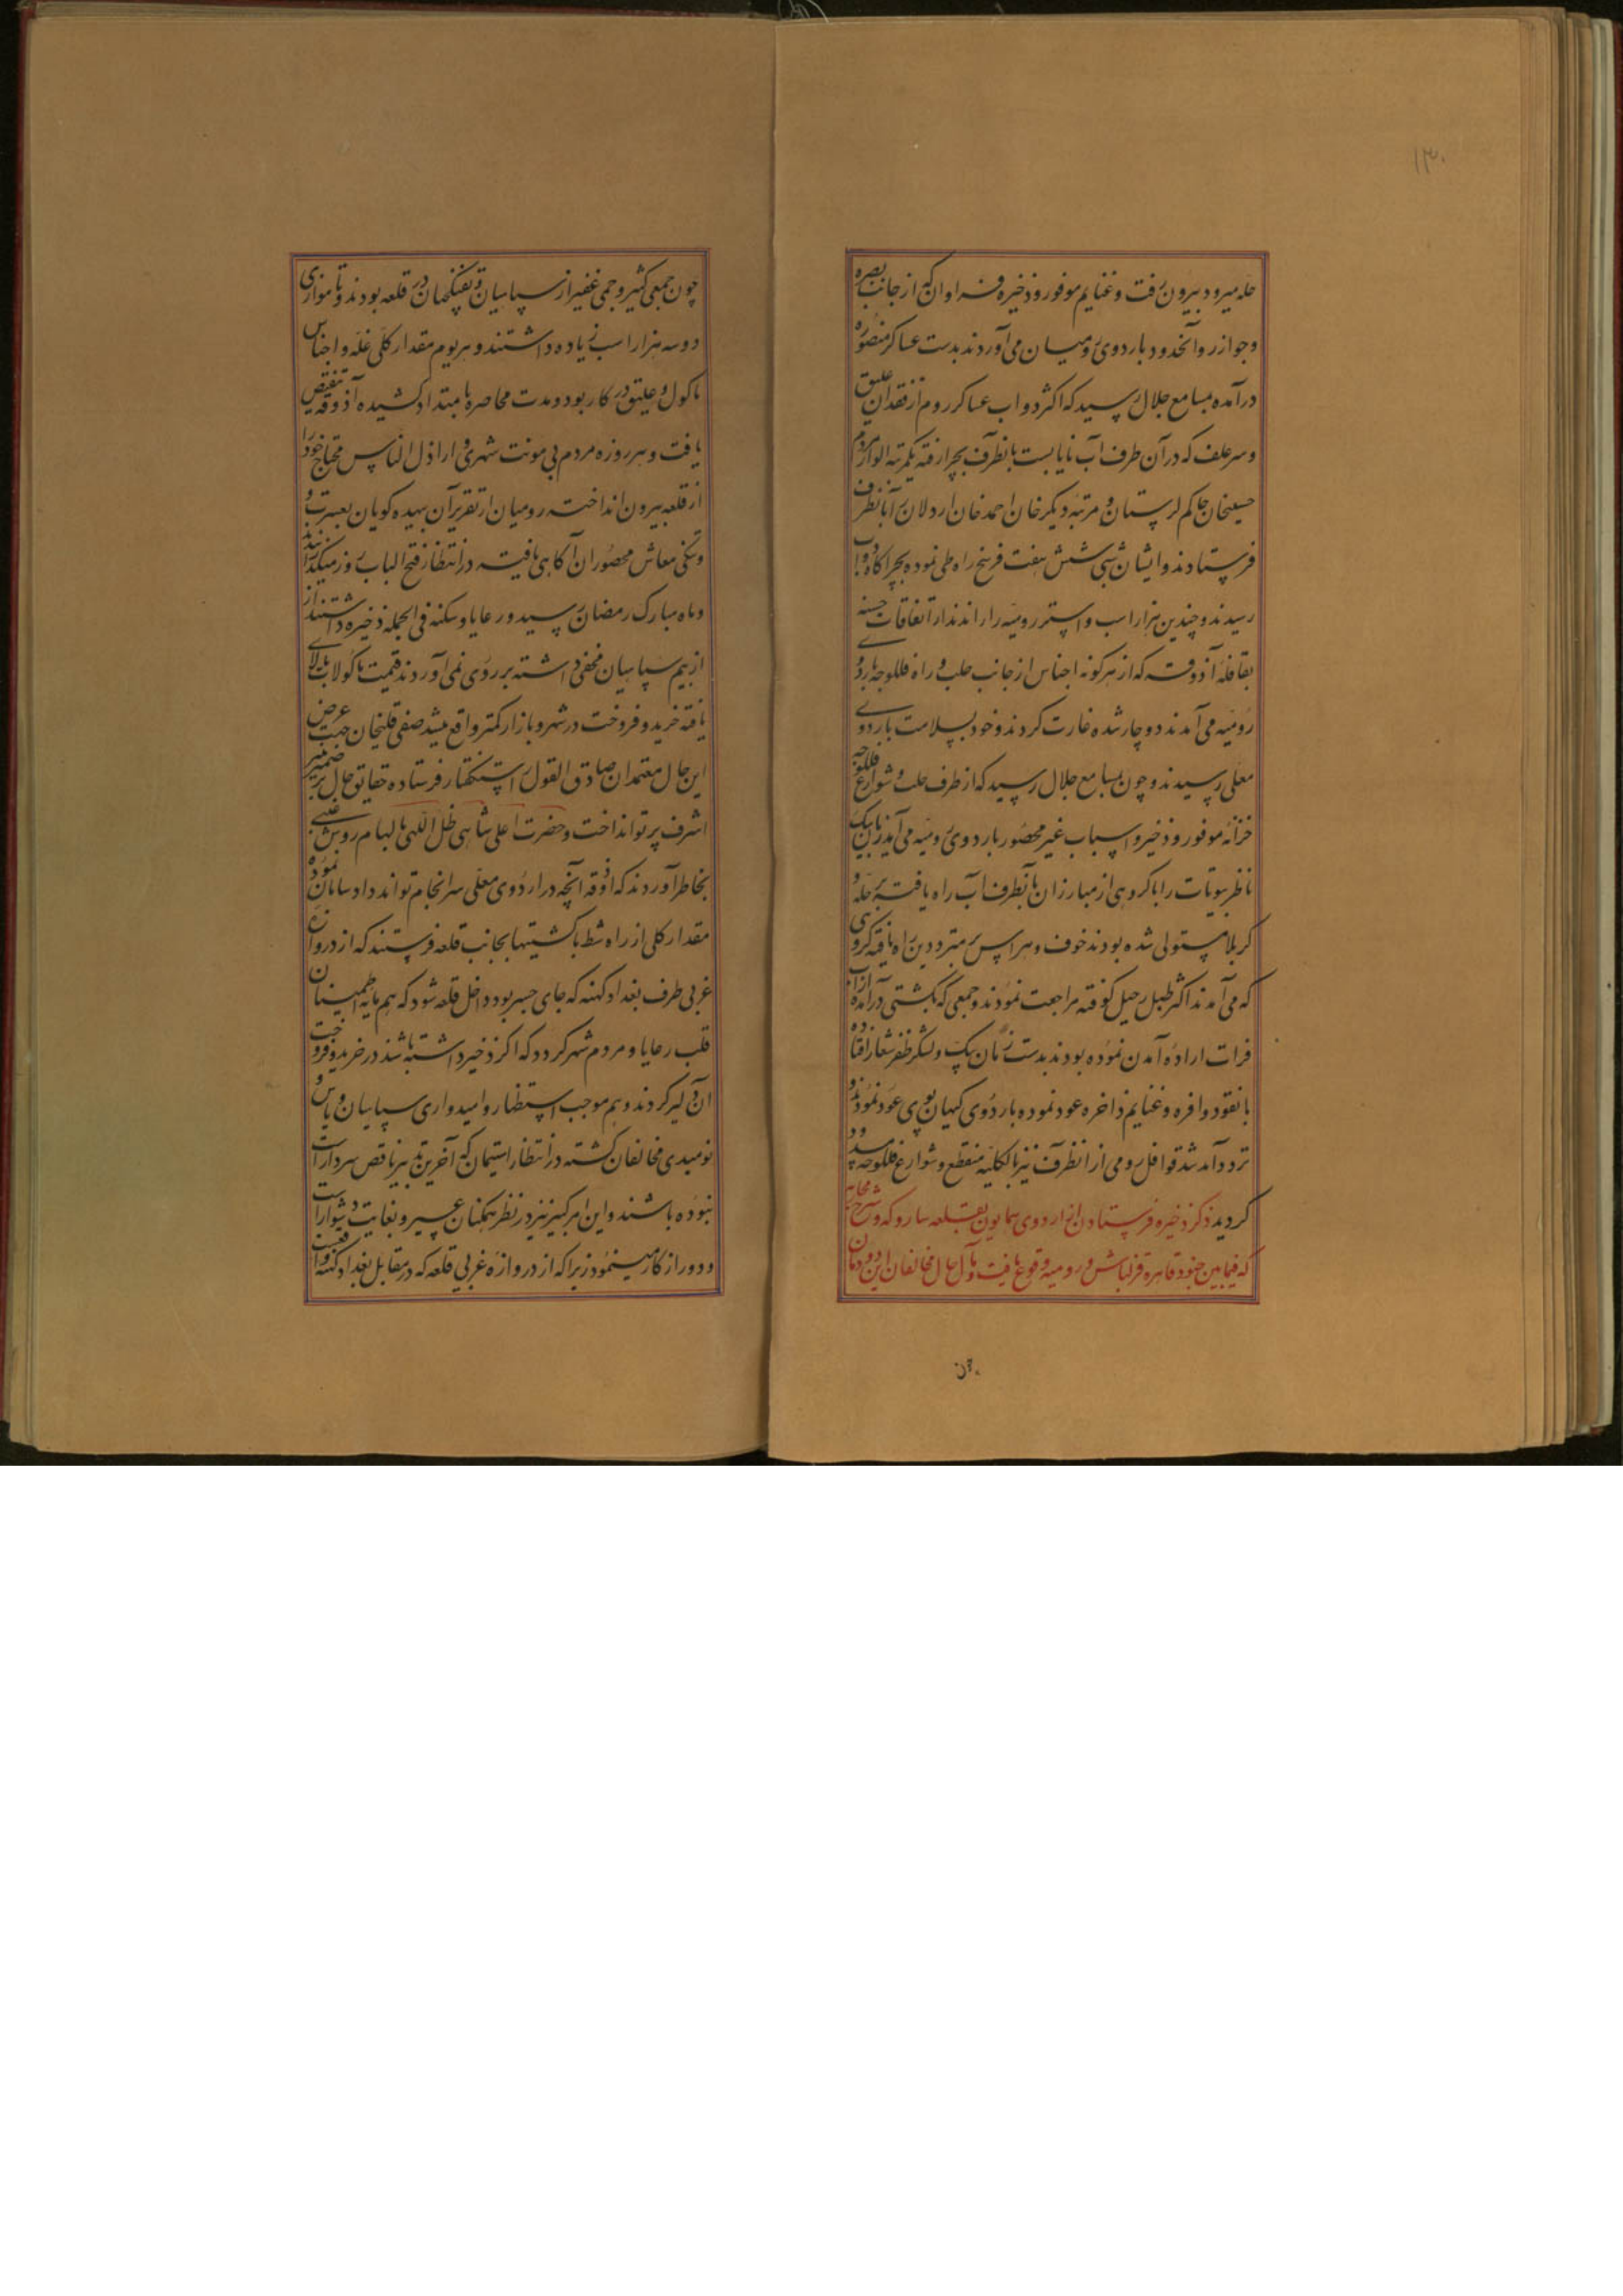 ۱۳۰
حله میرود بیرون رفت و غنایم موفور و ذخیره فراوان که از جانب بصره
و جوازر و آنحدود باردوی رومیان می‌آوردند بدست عساکر منصوره
درآمده بمسامع جلال رسید که اکثر دواب عساکر روم از فقدان علیق
و سر علف که در آن طرف آب نایابست بانطرف بچرا رفته یکمرتبه الوار مردم
حسینخان حاکم لرستان و مرتبه دیگر خان احمد خان اردلان را بانطرف
فرستادند و ایشان شبی شش هفت فرسخ راه طی نموده بچراگاه دواب
رسیدند و چندین هزار اسب و استر رومیه را راندند از اتفاقات حسنه
بقافله آذوقه که از هر گونه اجناس از جانب حلب و راه فلوجه باردوی
رومیه می‌آمدند دوچار شده غارت کردند و خود بسلامت باردوی
معلی رسیدند و چون بمسامع جلال رسید که از طرف حلب و شوارع فلوجه
خزانه موفور و ذخیره و اسباب غیر محصور باردوی رومیه می‌آید زمان بیک
ناظر بیوتات را با گروهی از مبارزان بانطرف آب راه یافته بر حله و
کربلا مستولی شده بودند خوف و هراس بر مترددین راه یافته گروهی
که می‌آمدند اکثر طبل رحیل کوفته مراجعت نمودند و جمعی که بکشتی درآمده از آب
فرات اراده آمدن نموده بودند بدست زمان بیک و لشکر ظفر شعار افتاده
با نقود وافره و غنایم ذاخره عود نموده باردوی کیهان پوی عود نمودند و
تردد آمد شد قوافل رومی از انطرف نیز بالکلیه منقطع و شوارع فلوجه مسدود
گردید ذکر ذخیره فرستادن از اردوی همایون بقلعه سارو که و شرح محاربه
که فیمابین جنود قاهره قزلباش و رومیه وقوع یافت و مآل حال مخالفان این دودمان
چون
چون جمعی کثیر و جمی غفیر از سپاهیان و تفنگچیان در قلعه بودند و تا موازی
دو سه هزار اسب زیاده داشتند و هر یوم مقدار کلی غله و اجناس
ماکول و علیق در کار بود و مدت محاصره بامتداد کشیده آذوقه تنقیص
یافت و هر روزه مردم بی مونت شهری و اراذل الناس محتاج خود را
از قلعه بیرون انداخته رومیان از تقریر آن بیهده گویان بعسرت و
و تنگی معاش محصوران آگاهی یافته در انتظار فتح الباب روز میگذرانیدند
و ماه مبارک رمضان رسید و رعایا و سکنه فی الجمله ذخیره داشتند از
از بیم سپاهیان مخفی داشته بر روی نمی‌آوردند قیمت ماکولات بالای
یافته خرید و فروخت در شهر و بازار کمتر واقع میشد صفی قلیخان جهت عرض
این حال معتمدان صادق القول راست گفتار فرستاده حقایق حال بر ضمیر
اشرف پرتو انداخت و حضرت اعلی شاهی ظل اللهی بالهام روش غیبی
بخاطر آوردند که آذوقه آنچه در اردوی معلی سرانجام تواند داد سامان نموده
مقدار کلی از راه شط با کشتیها بجانب قلعه فرستند که از دروازه
غربی طرف بغداد کهنه که جای جسر بود داخل قلعه شود که هم مایه اطمینان
قلب رعایا و مردم شهر گردد که اگر ذخیره داشته باشند در خرید و فروخت
آن دلیر گردند و هم موجب استظهار و امیدواری سپاهیان و یاس و
نومیدی مخالفان گشته در انتظار استیمان که آخرین تدبیر ناقص سردار است
نبوده باشند و این امر کبیر نیز در نظر همگنان عسیر و بغایت دشوار است
و دور از کار مینمود زیرا که از دروازه غربی قلعه که در مقابل بغداد کهنه واقعست